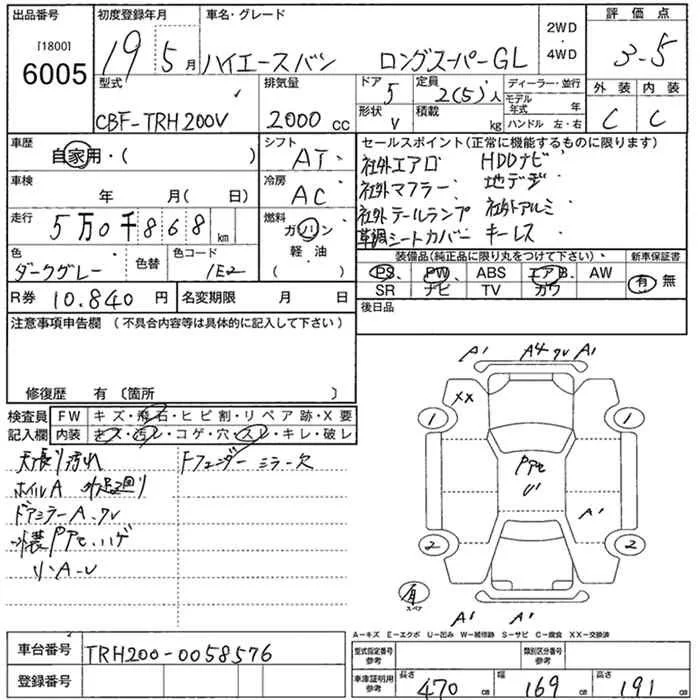 出品番号
[1800]
6005
初度登録年月
19 5 月
車名・グレード
ハイエースバン ロングスーパーGL
2WD
・
4WD
評価点
3-5
外装 内装
C C
型式
CBF-TRH200V
排気量
2000 cc
ドア
5
定員
2(5)人
ディーラー・並行
モデル年式 年
形状
V
積載
kg
ハンドル 左・右
車歴
自家用・( )
シフト
AT
車検
年 月( 日)
冷房
AC
走行
5万0千868 km
燃料
ガソリン
軽油
( )
色
ダークグレー
色替
色コード
1E2
R券 10.840 円
名変期限 月 日
セールスポイント(正常に機能するものに限ります)
社外エアロ HDDナビ
社外マフラー 地デジ
社外テールランプ 社外アルミ
革調シートカバー キーレス
装備品(純正品に限り丸をつけて下さい)
新車保証書
PS PW ABS エアB AW
SR ナビ TV カワ
有・無
後日品
注意事項申告欄(不具合内容等は具体的に記入して下さい)
修復歴 有(箇所 )
検査員
記入欄
FW キズ・飛石・ヒビ割・リペア跡・X要
内装 キズ・汚レ・コゲ・穴・スレ・キレ・破レ
天張り汚れ
Fフェンダーミラー欠
ホイルA 外足廻り
ドアミラーA
A1 A4 A1
XX
1 1
U1
A1
2 2
有
スペア
A1 A1
A-キズ E-エクボ U-凹み W-補修跡 S-サビ C-腐食 XX-交換済
車台番号 TRH200-0058576
登録番号
型式指定番号
参考
類別区分番号
参考
車庫証明用
参考
長さ 470 cm
幅 169 cm
高さ 191 cm